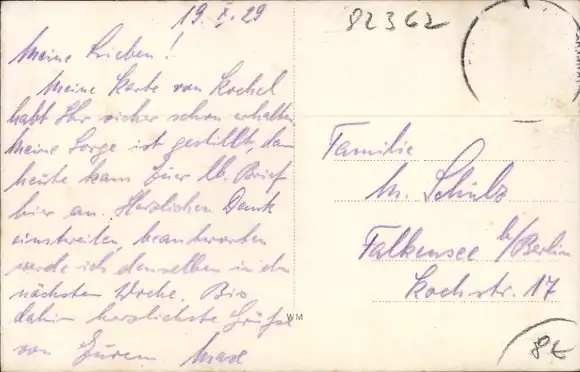 19. X. 29
82362
Meine Lieben!
Meine Karte von Kochel
habt Ihr sicher schon erhalten
Meine Sorge ist gestillt, denn
heute kam Euer lb. Brief
hier an. Herzlichen Dank
einstweilen, beantworten
werde ich denselben in der
nächsten Woche. Bis
dahin herzlichste Grüße
von Eurem Max
Familie
M. Schulz
Falkensee b/Berlin
Kochstr. 17
WM
8E